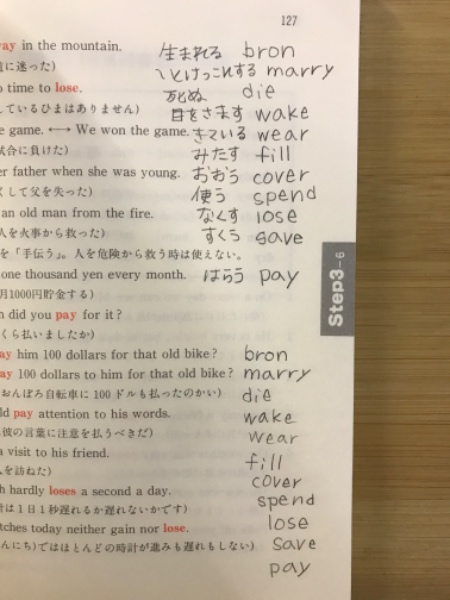 127
ay in the mountain.
生まれる bron
に迷った)
とけっこんする marry
o time to lose.
死ぬ die
しているひまはありません)
目をさます wake
e game. ←→ We won the game.
きている wear
試合に負けた)
みたす fill
er father when she was young.
おおう cover
くして父を失った)
使う spend
an old man from the fire.
なくす lose
人を火事から救った)
すくう save
を「手伝う」。人を危険から救う時は使えない。
one thousand yen every month.
はらう pay
月1000円貯金する)
Step3-6
did you pay for it?
くら払いましたか)
ay him 100 dollars for that old bike?
bron
ay 100 dollars to him for that old bike?
marry
おんぼろ自転車に100ドルも払ったのかい)
die
ld pay attention to his words.
wake
彼の言葉に注意を払うべきだ)
wear
a visit to his friend.
fill
を訪ねた)
cover
h hardly loses a second a day.
spend
計は1日1秒遅れるか遅れないかです)
lose
tches today neither gain nor lose.
save
んにち)ではほとんどの時計が進みも遅れもしない)
pay